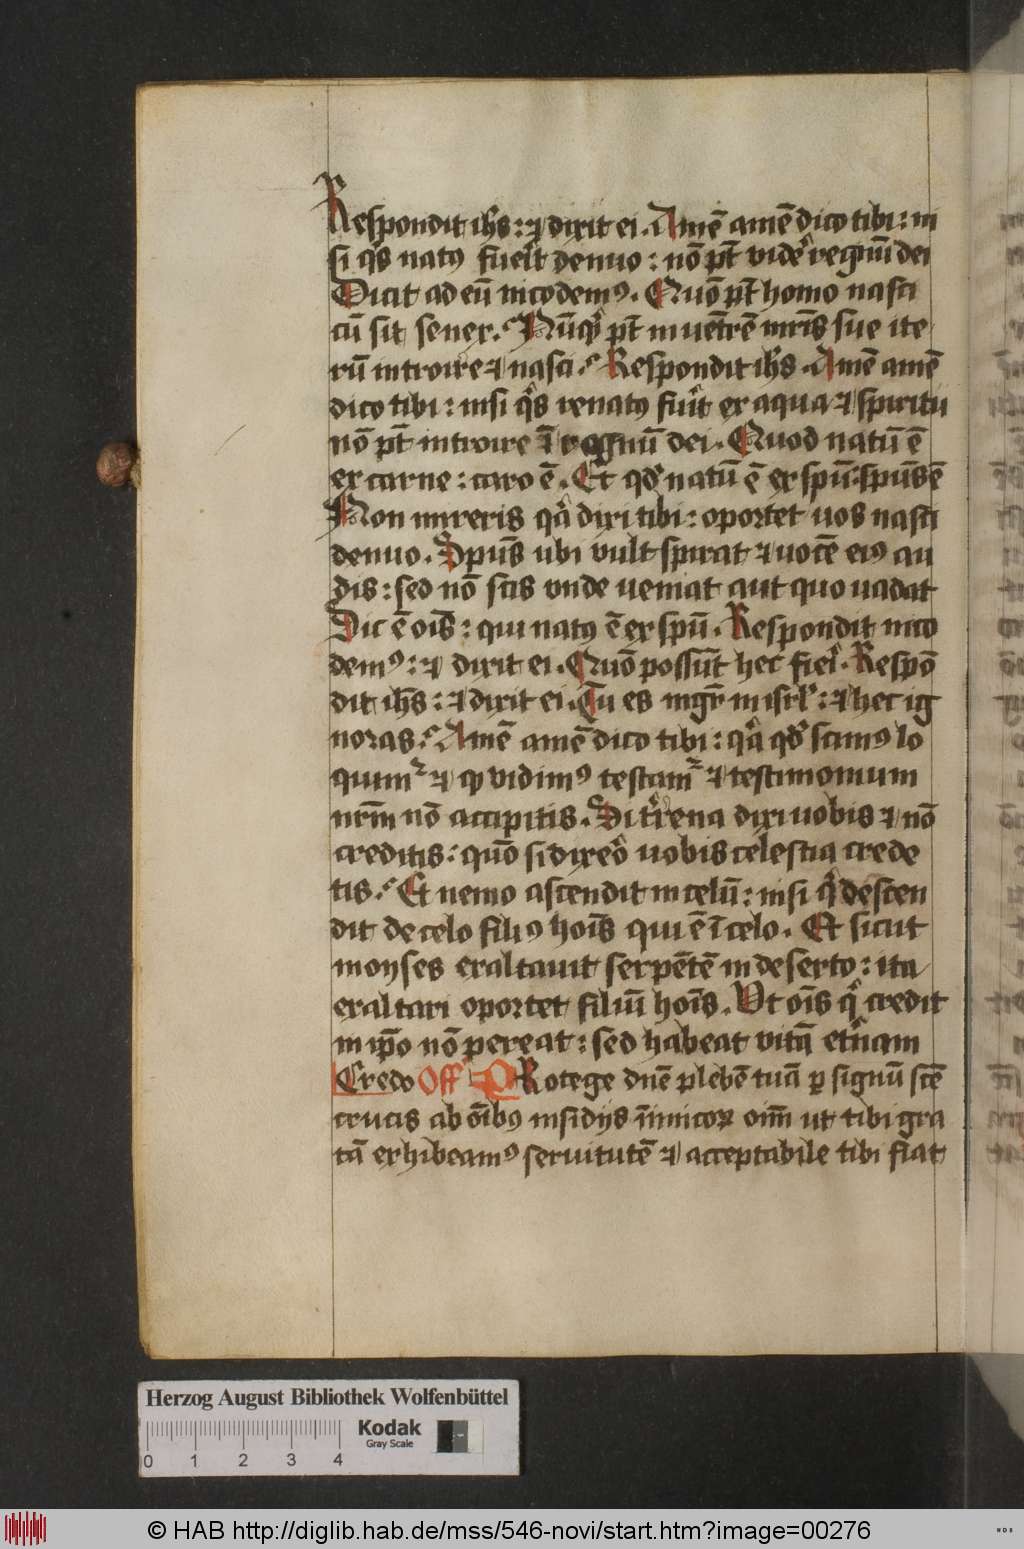 Respondit ih̄s: ⁊ dixit ei. Amē amē dico tibi: ni
si q̇s natꝰ fuẽit denuo: nō pt̄ vidẽ regnū dei
Dicit ad eū nicodemꝰ. Quō pt̄ homo nasci
cū sit senex? Nūqͥ pt̄ in uētrē mr̄is sue ite
rū introire ⁊ nasci? Respondit ih̄s. Amē amē
dico tibi: nisi q̇s renatꝰ fuẽit ex aqua ⁊ spiritu
nō pt̄ introire ī regnū dei. Quod natū ē
ex carne: caro ē. Et qd̓ natū ē ex spū: spūs ē
Non mireris qͣ dixi tibi: oportet uos nasci
denuo. Spūs ubi vult spirat ⁊ uocē eiꝰ au
dis: sed nō scis vnde ueniat aut quo uadat
Sic ē oīs: qui natꝰ ē ex spū. Respondit nico
demꝰ: ⁊ dixit ei. Quō possūt hec fieĩ. Respō
dit ih̄s: ⁊ dixit ei. Tu es mgr̄ in isrl̓: ⁊ hec ig
noras? Amē amē dico tibi: qͣ qd̓ scimꝰ lo
quimͬ ⁊ ꝙ vidimꝰ testamͬ ⁊ testimonium
nr̄m nō accipitis. Si tr̃ena dixi uobis ⁊ nō
creditis: quō si dixẽo uobis celestia crede
tis? Et nemo ascendit in celū: nisi qͥ descen
dit de celo filiꝰ hoīs qui ē ī celo. Et sicut
moyses exaltauit serpētē in deserto: ita
exaltari oportet filiū hoīs. Vt oīs qͥ credit
in ip̄o nō pereat: sed habeat vitā et̃nam
Credo Off̄ PRotege dn̄e plebē tuā ꝑ signū sc̄e
crucis ab oībꝰ insidijs īnimicoꝝ oīm̄ ut tibi gra
tā exhibeamꝰ seruitutē ⁊ acceptabile tibi fiat
Herzog August Bibliothek Wolfenbüttel
Kodak
Gray Scale
0 1 2 3 4
© HAB http://diglib.hab.de/mss/546-novi/start.htm?image=00276